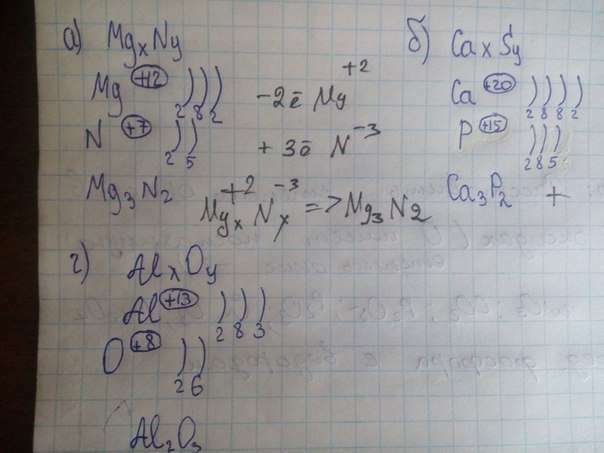 а) MgxNy
Mg +12 ) ) ) 2 8 2 -2ē Mg +2
N +7 ) ) 2 5 + 3ē N -3
Mg3N2 Mgx +2 Nx -3 => Mg3N2
б) CaxSy
Ca +20 ) ) ) ) 2 8 8 2
P +15 ) ) ) 2 8 5
Ca3P2 +
г) AlxOy
Al +13 ) ) ) 2 8 3
O +8 ) ) 2 6
Al2O3